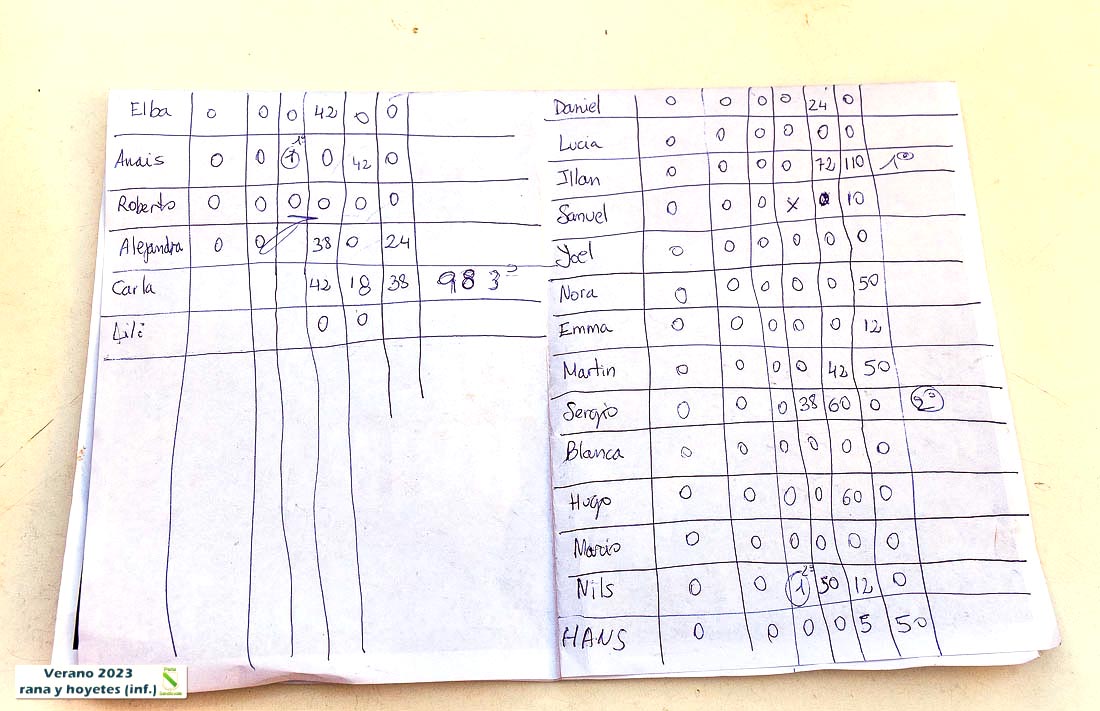 Elba 0 0 0 42 0 0
Anais 0 0 1 1º 0 42 0
Roberto 0 0 0 0 0 0
Alejandra 0 0 38 0 24
Carla 42 18 38 98 3º
Lili 0 0
Daniel 0 0 0 0 24 0
Lucia 0 0 0 0 0 0
Illan 0 0 0 0 72 110 1º
Samuel 0 0 0 X 0 10
Yoel 0 0 0 0 0 0
Nora 0 0 0 0 0 50
Emma 0 0 0 0 0 12
Martin 0 0 0 0 42 50
Sergio 0 0 0 38 60 0 2º
Blanca 0 0 0 0 0 0
Hugo 0 0 0 0 60 0
Mario 0 0 0 0 0 0
Nils 0 0 1 2º 50 12 0
HANS 0 0 0 0 5 50
Verano 2023
rana y hoyetes (inf.)